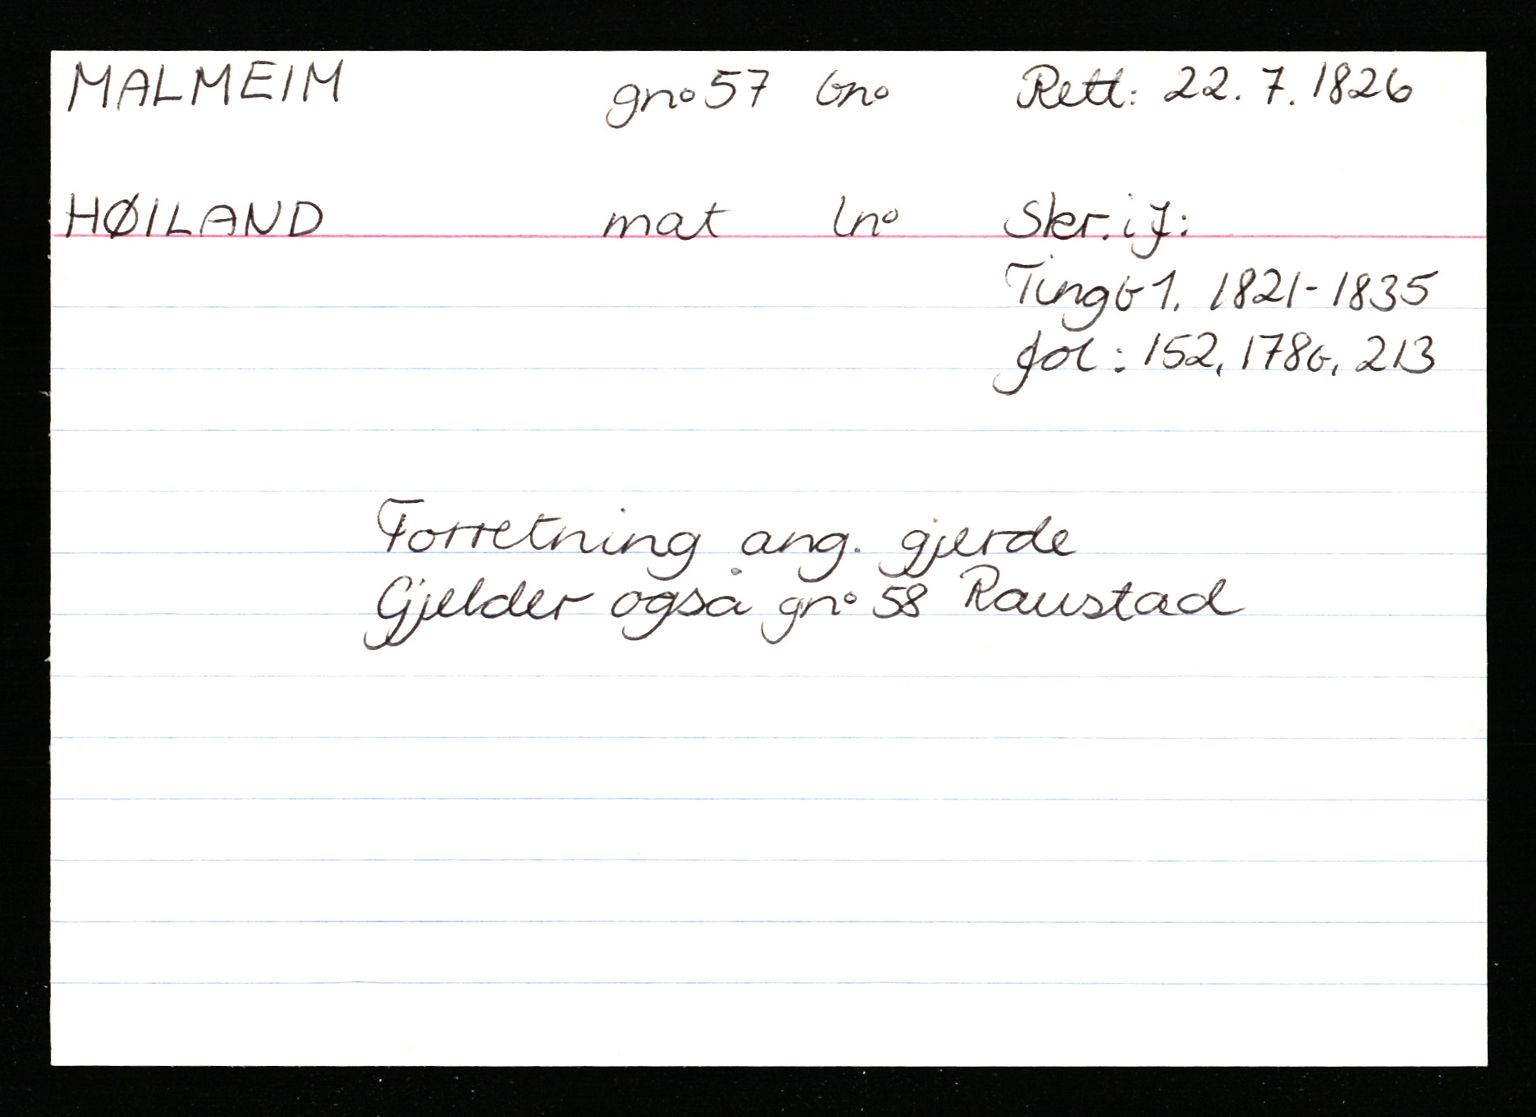 MALMEIM gno 57 bno Rett: 22.7.1826
HØILAND mat lno Skr. i J:
Tingb 1. 1821-1835
fol: 152, 178b, 213
Forretning ang. gjerde
Gjelder også gno 58 Raustad